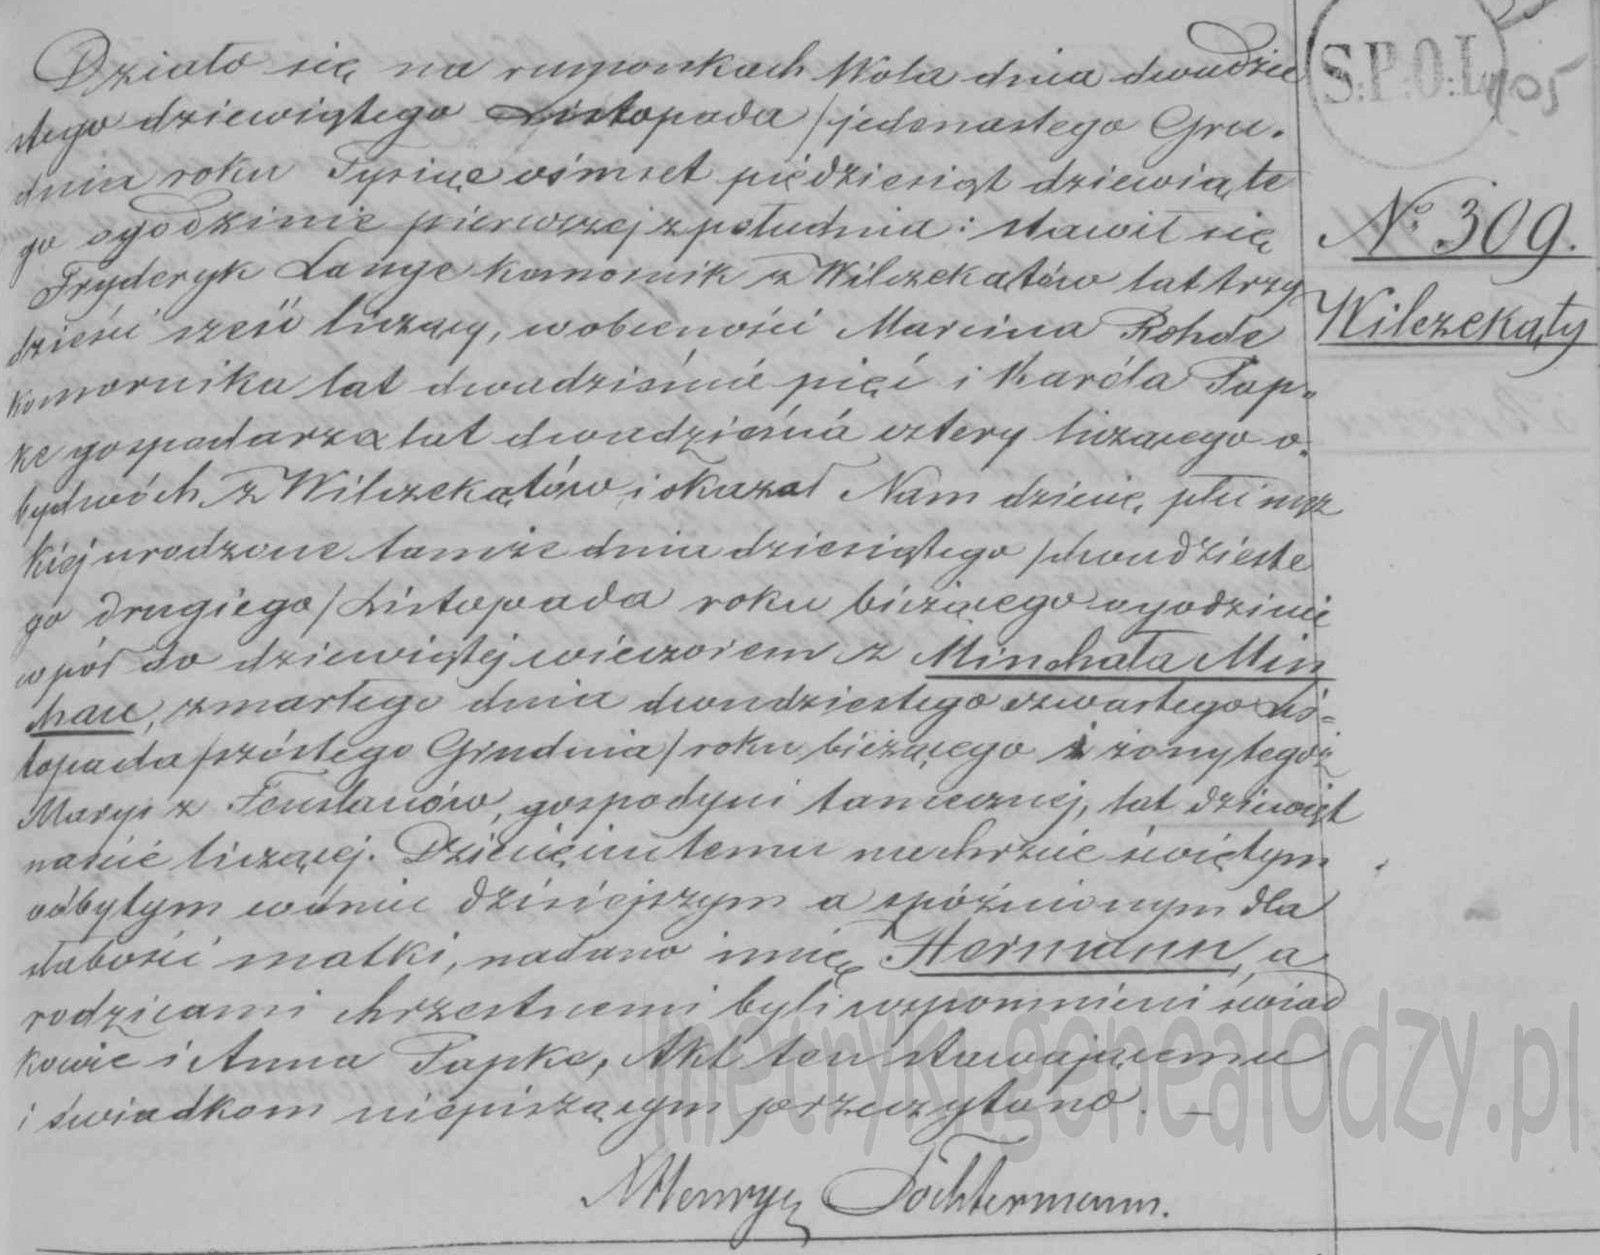 S.P.O.L
105
Działo się na rumonkach Wola dnia dwudzie
stego dziewiątego Listopada /jedenastego Gru.
dnia roku Tysiąc ośmset pięćdziesiąt dziewiąte
go ogodzinie pierwszej z południa: stawił się
Fryderyk Lange komornik z Wilczekątów lat trzy
dzieści sześć liczący, wobecności Marcina Rohde
komornika lat dwadzieście pięć i Karóla Pap=
ke gospodarza lat dwadzieścia cztery liczącego o.
bydwóch z Wilczekątów, i okazał Nam dziecię, płci męz
kiej urodzone tamże dnia dziesiątego /dwudzieste
go drugiego/ Listopada roku bieżącego ogodzinie
wpół do dziewiątej wieczorem z Minchała Min
chau, zmarłego dnia dwudziestego czwartego Lis=
topada /szóstego Grudnia/ roku bieżącego i żony tegoż
Maryi z Fenslauów, gospodyni tamecznej, lat dziewięt
naście liczącej. Dziecięciu temu na chrzcie świętym
odbytym wdniu dzisiejszym a spóźnionym dla
słabości matki, nadano imię Hermann, a
rodzicami chrzestnemi byli wspomnieni świad
kowie i Anna Papke, Akt ten stawającemu
i świadkom niepiszącym przeczytano. —
Henryk Tochtermann.
No 309.
Wilczekąty
metryki.genealodzy.pl